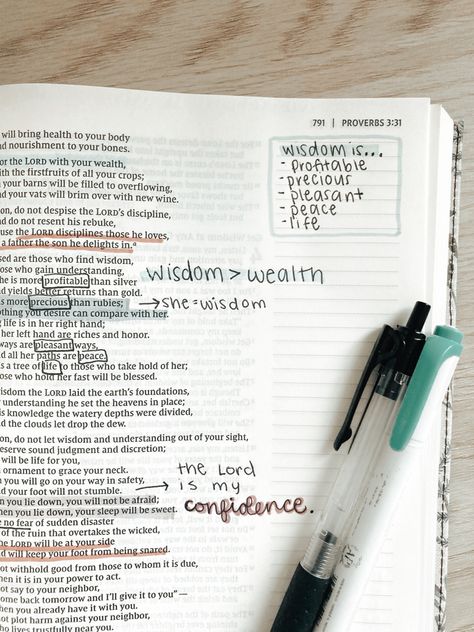 791 | PROVERBS 3:31
will bring health to your body
nd nourishment to your bones.
or the LORD with your wealth,
th the firstfruits of all your crops;
your barns will be filled to overflowing,
nd your vats will brim over with new wine.
on, do not despise the LORD's discipline,
nd do not resent his rebuke,
use the LORD disciplines those he loves,
a father the son he delights in.ᵃ
sed are those who find wisdom,
ose who gain understanding,
he is more profitable than silver
nd yields better returns than gold.
s more precious than rubies;
othing you desire can compare with her.
life is in her right hand;
her left hand are riches and honor.
ways are pleasant ways,
nd all her paths are peace.
s a tree of life to those who take hold of her;
ose who hold her fast will be blessed.
isdom the LORD laid the earth's foundations,
understanding he set the heavens in place;
s knowledge the watery depths were divided,
nd the clouds let drop the dew.
on, do not let wisdom and understanding out of your sight,
eserve sound judgment and discretion;
will be life for you,
ornament to grace your neck.
you will go on your way in safety,
nd your foot will not stumble.
you lie down, you will not be afraid;
hen you lie down, your sleep will be sweet.
no fear of sudden disaster
of the ruin that overtakes the wicked,
he LORD will be at your side
nd will keep your foot from being snared.
ot withhold good from those to whom it is due,
hen it is in your power to act.
ot say to your neighbor,
ome back tomorrow and I'll give it to you" —
hen you already have it with you.
ot plot harm against your neighbor,
ho lives trustfully near you.
wisdom is...
- profitable
- precious
- pleasant
- peace
- life
wisdom > wealth
→ she = wisdom
→ the Lord
is my
confidence.